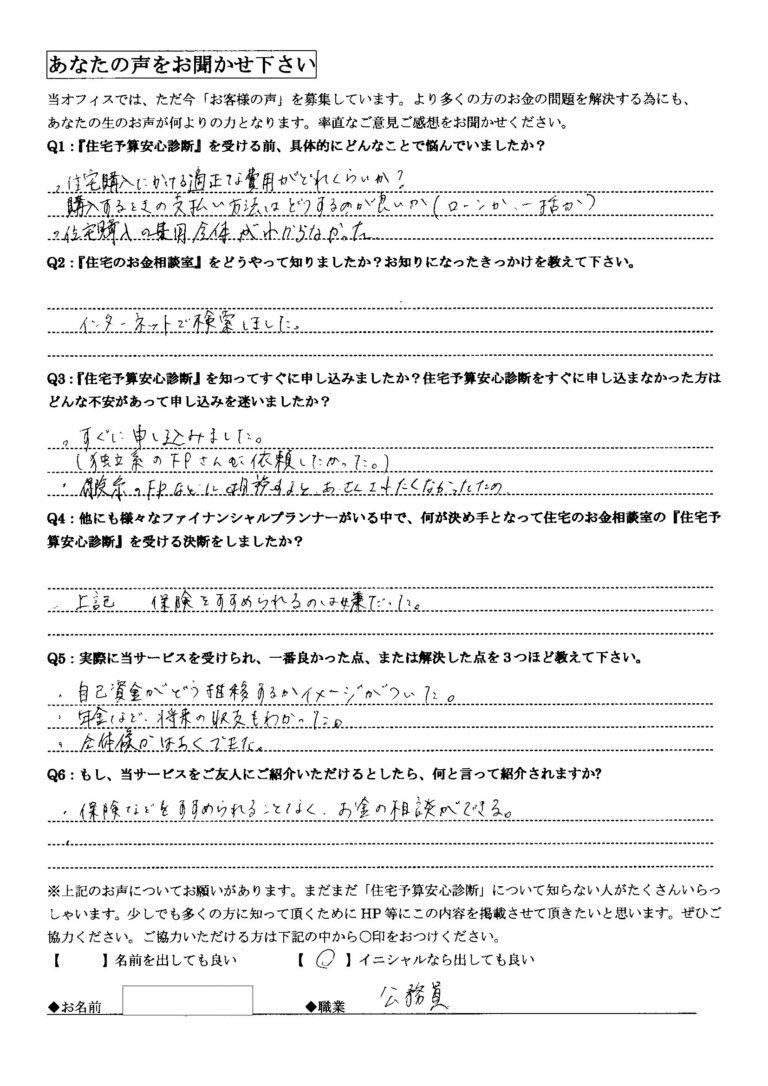 あなたの声をお聞かせ下さい
当オフィスでは、ただ今「お客様の声」を募集しています。より多くの方のお金の問題を解決する為にも、
あなたの生のお声が何よりの力となります。率直なご意見ご感想をお聞かせください。
Q1:『住宅予算安心診断』を受ける前、具体的にどんなことで悩んでいましたか？
・住宅購入にかける適正な費用がどれくらいか？
購入するときの支払い方法はどうするのが良いか（ローンか、一括か）
・住宅購入の費用全体がわからなかった
Q2:『住宅のお金相談室』をどうやって知りましたか？お知りになったきっかけを教えて下さい。
インターネットで検索しました。
Q3:『住宅予算安心診断』を知ってすぐに申し込みましたか？住宅予算安心診断をすぐに申し込まなかった方は
どんな不安があって申し込みを迷いましたか？
・すぐに申し込みました。
（独立系のFPさんに依頼したかった。）
・保険系のFPなどに相談すると、 たくなかったため
Q4：他にも様々なファイナンシャルプランナーがいる中で、何が決め手となって住宅のお金相談室の『住宅予
算安心診断』を受ける決断をしましたか？
・上記 保険をすすめられるのは嫌だった。
Q5：実際に当サービスを受けられ、一番良かった点、または解決した点を３つほど教えて下さい。
・自己資金がどう推移するかイメージがついた。
・年金など、将来の収支もわかった。
・全体像がはあくできた。
Q6：もし、当サービスをご友人にご紹介いただけるとしたら、何と言って紹介されますか?
・保険などをすすめられることなく、お金の相談ができる。
※上記のお声についてお願いがあります。まだまだ「住宅予算安心診断」について知らない人がたくさんいらっ
しゃいます。少しでも多くの方に知って頂くために HP 等にこの内容を掲載させて頂きたいと思います。ぜひご
協力ください。ご協力いただける方は下記の中から〇印をおつけください。
【　　】名前を出しても良い 【 〇 】イニシャルなら出しても良い
◆お名前 ◆職業 公務員